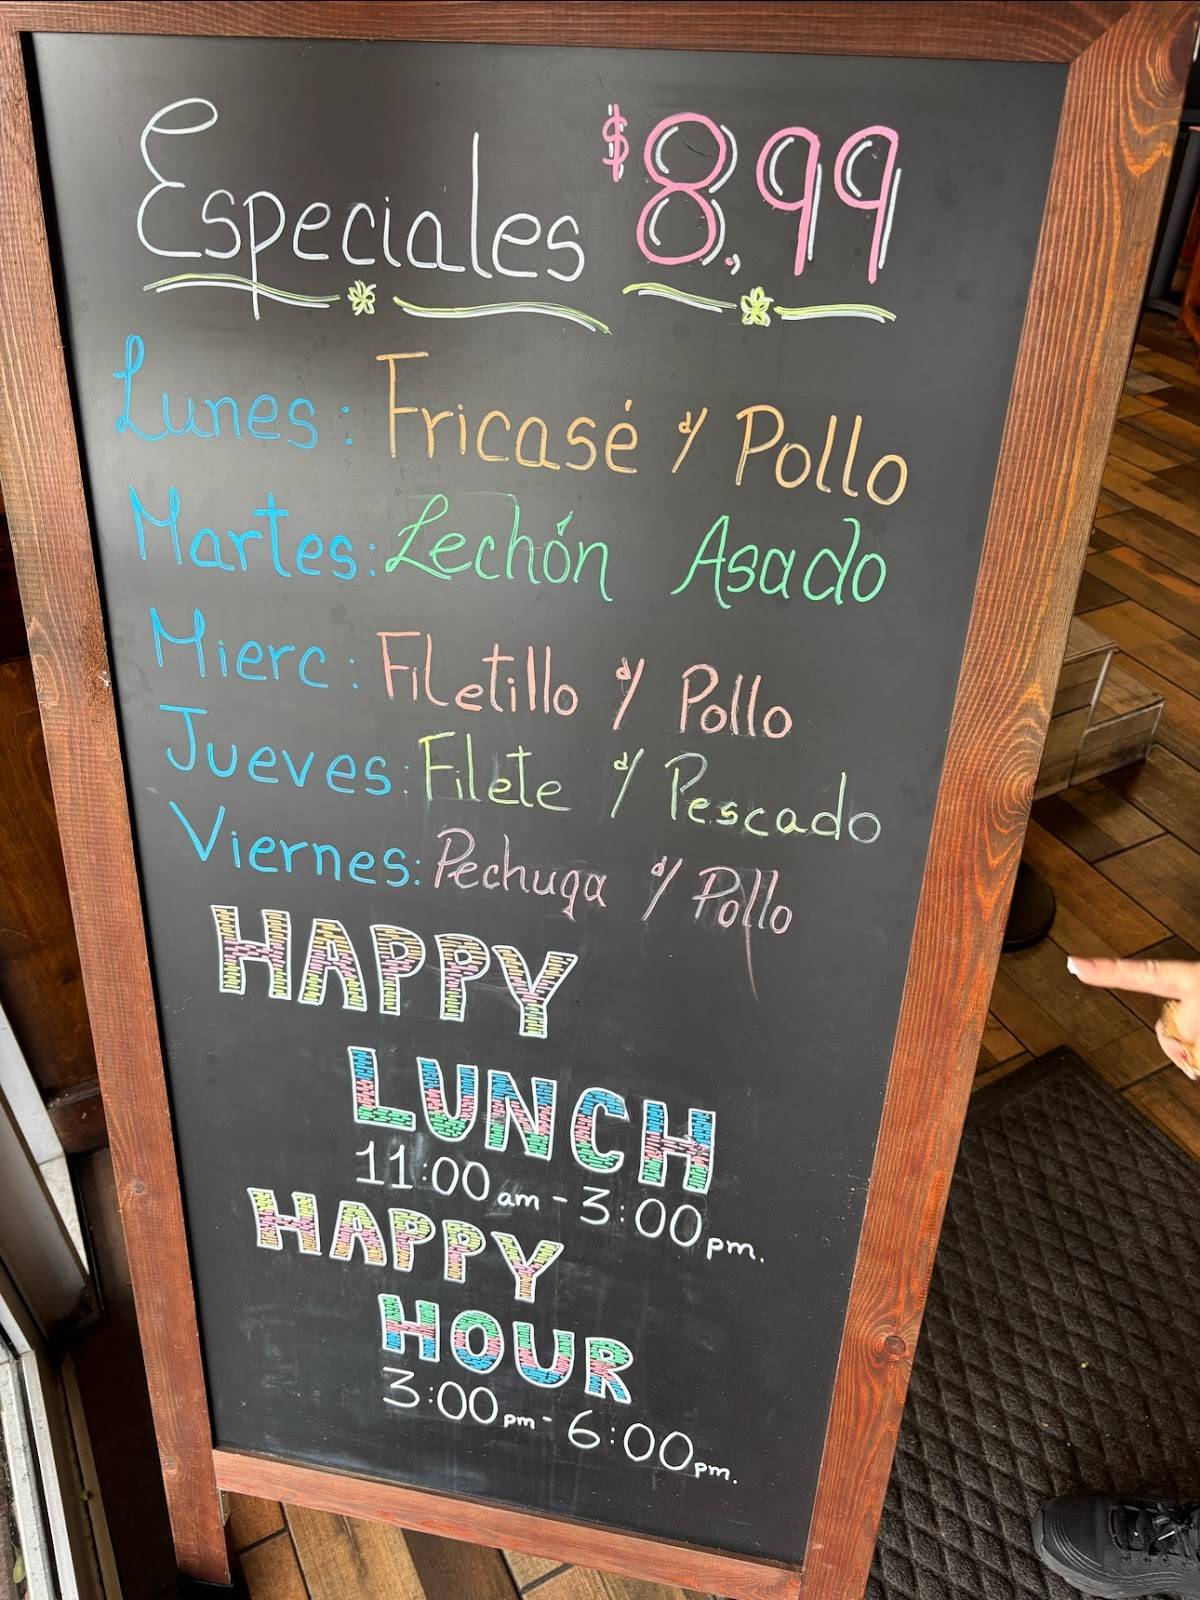 Especiales $8.99
Lunes: Fricasé d/ Pollo
Martes: Lechón Asado
Mierc: Filetillo d/ Pollo
Jueves: Filete d/ Pescado
Viernes: Pechuga d/ Pollo
HAPPY
LUNCH
11:00 am - 3:00 pm.
HAPPY
HOUR
3:00 pm - 6:00 pm.